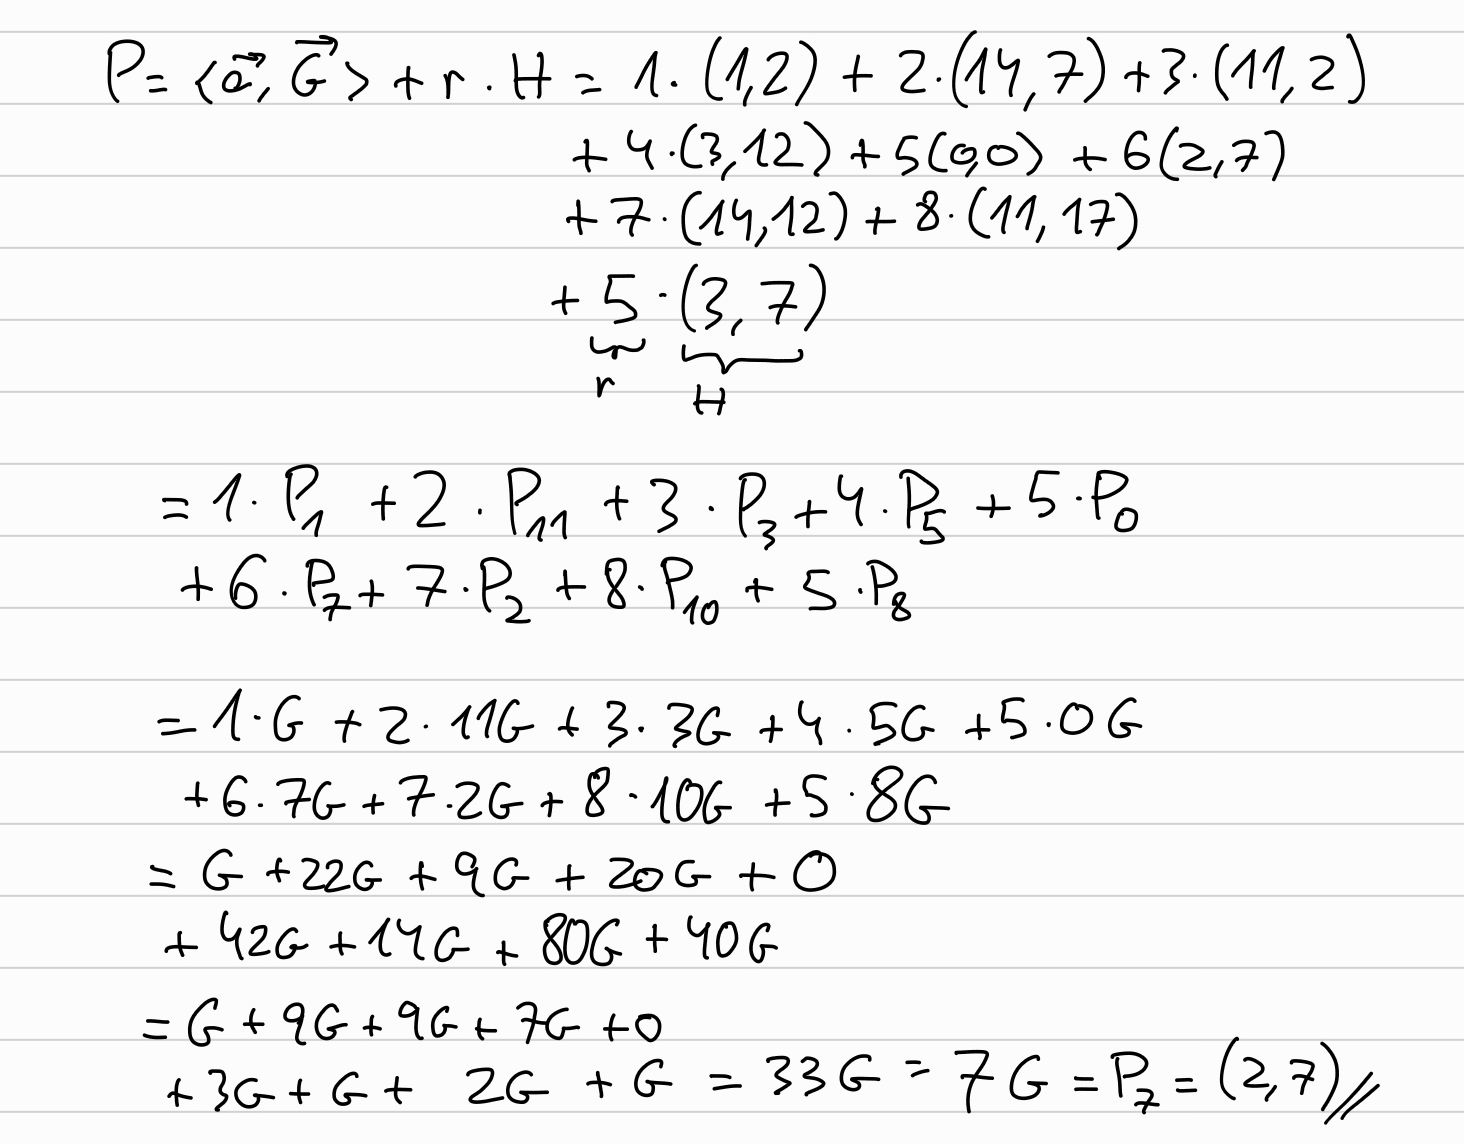 P = ⟨a⃗, G⃗⟩ + r · H = 1 · (1,2) + 2 · (14,7) + 3 · (11,2)
+ 4 · (3,12) + 5(0,0) + 6(2,7)
+ 7 · (14,12) + 8 · (11,17)
+ 5 · (3,7)
r H
= 1 · P₁ + 2 · P₁₁ + 3 · P₃ + 4 · P₅ + 5 · P₀
+ 6 · P₇ + 7 · P₂ + 8 · P₁₀ + 5 · P₈
= 1 · G + 2 · 11G + 3 · 3G + 4 · 5G + 5 · 0G
+ 6 · 7G + 7 · 2G + 8 · 10G + 5 · 8G
= G + 22G + 9G + 20G + 0
+ 42G + 14G + 80G + 40G
= G + 9G + 9G + 7G + 0
+ 3G + G + 2G + G = 33G = 7G = P₇ = (2,7)//